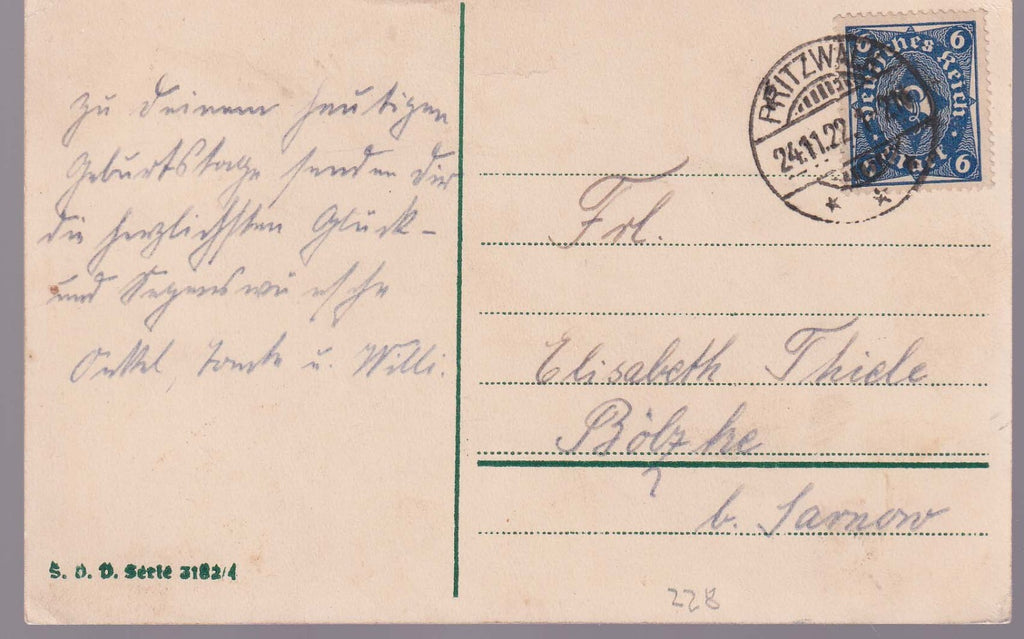 Zu Deinem heutigen
Geburtstage senden Dir
die herzlichsten Glück-
und Segenswünsche
Onkel, Tante u. Willi.
S. O. D. Serie 3182/4
PRITZWALK
24.11.22.
Deutsches Reich
6 6
6
Frl.
Elisabeth Thiele
Bölzke
b. Sarnow
228